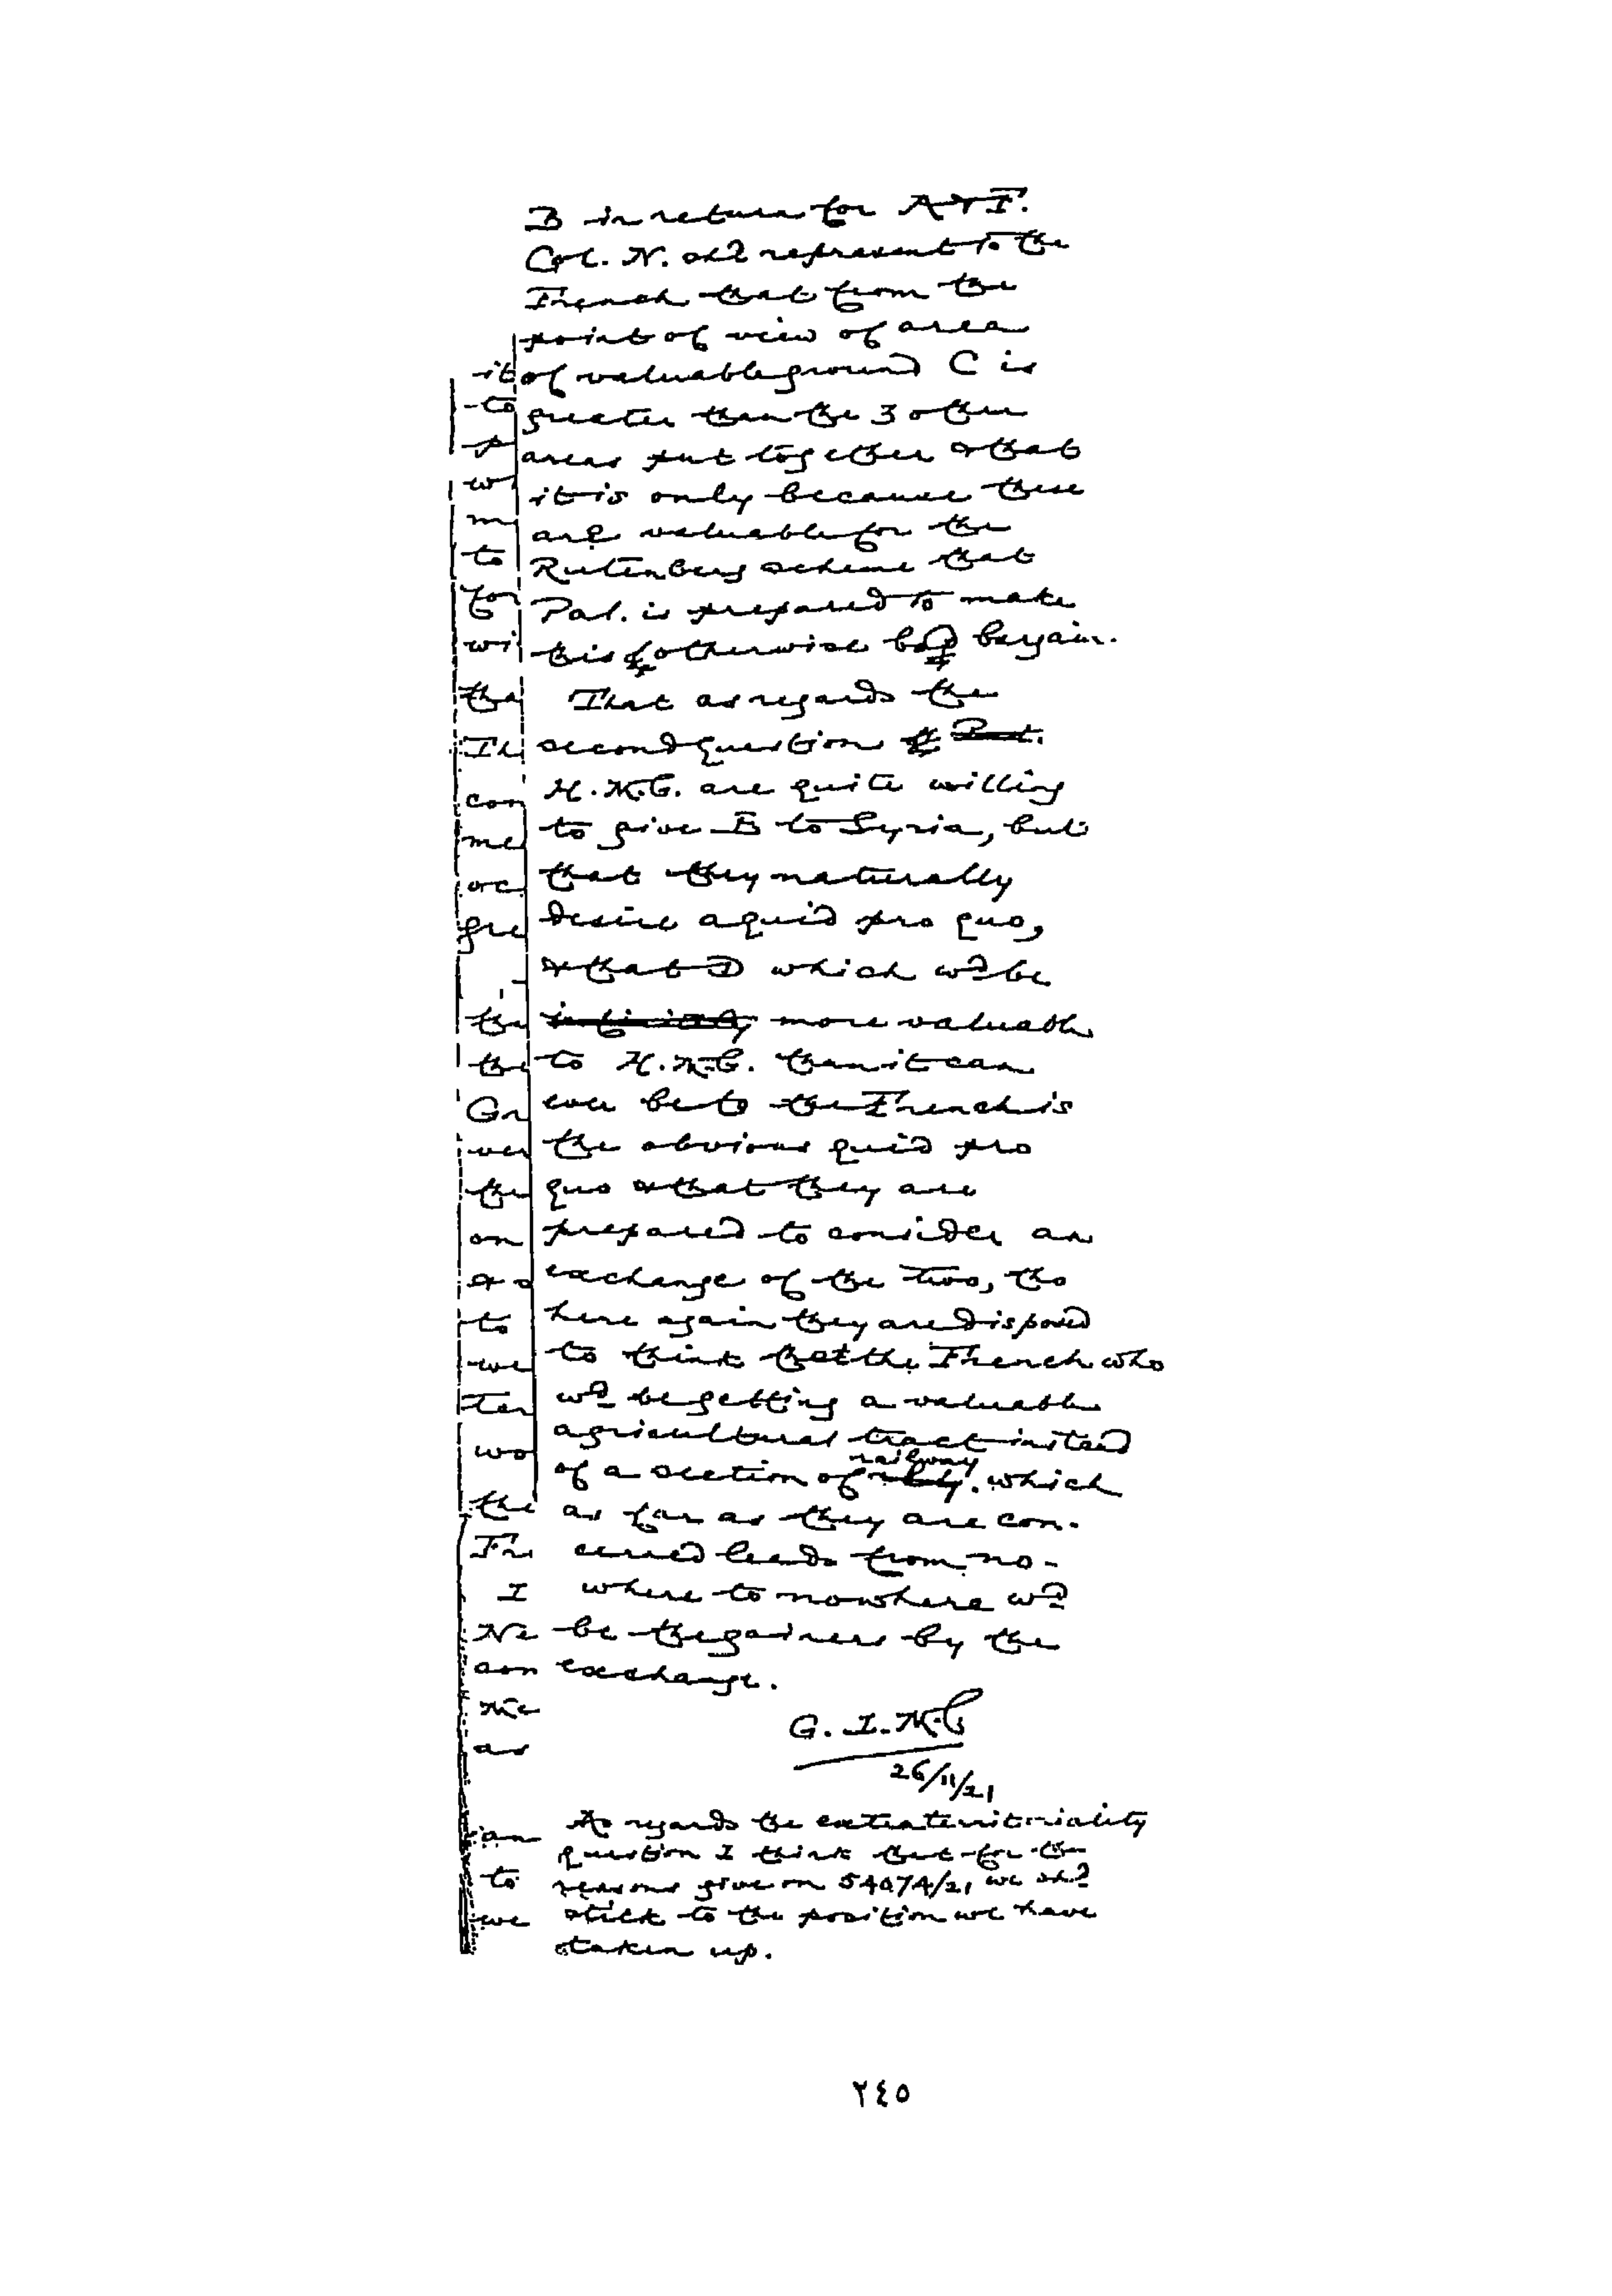 B in return for A & F.
Col. N. shd represent to the
French that from the
point of view of area
of valuable ground C is
greater than the 3 other
areas put together & that
it is only because these
are valuable for the
Rutenberg scheme that
Pal. is prepared to make
this otherwise bad bargain.
That as regards the
second question
H.M.G. are quite willing
to give B to Syria, but
that they naturally
desire a quid pro quo,
& that D which wd be
more valuable
to H.M.G. than it can
ever be to the French is
the obvious quid pro
quo & that they are
prepared to consider an
exchange of the two, tho
here again they are disposed
to think that the French who
wd be getting a valuable
agricultural tract instead
of a section of railway which
as far as they are con-
cerned leads from no-
where to nowhere wd
be the gainers by the
exchange.
G. L. M. C
26/11/21
As regards the extraterritoriality
question I think that for the
reasons give on 54074/21 we shd
stick to the position we have
taken up.
it
to
w
m
to
for
wi
tha
Th
con
me
oc
gre
tha
the
Gr
ver
the
on
& o
to
we
Ter
wo
the
Fr
I
Ne
con
Me
as
an
to
we
٢٤٥